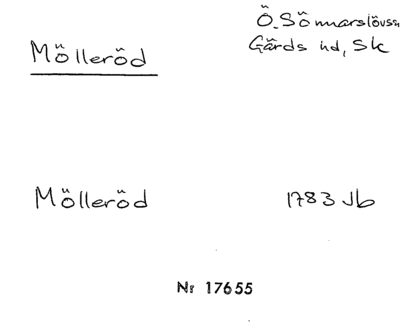 Ö. Sönnarslövssn
Gärds hd, Sk
Mölleröd
Mölleröd 1783 Jb
Nr 17655